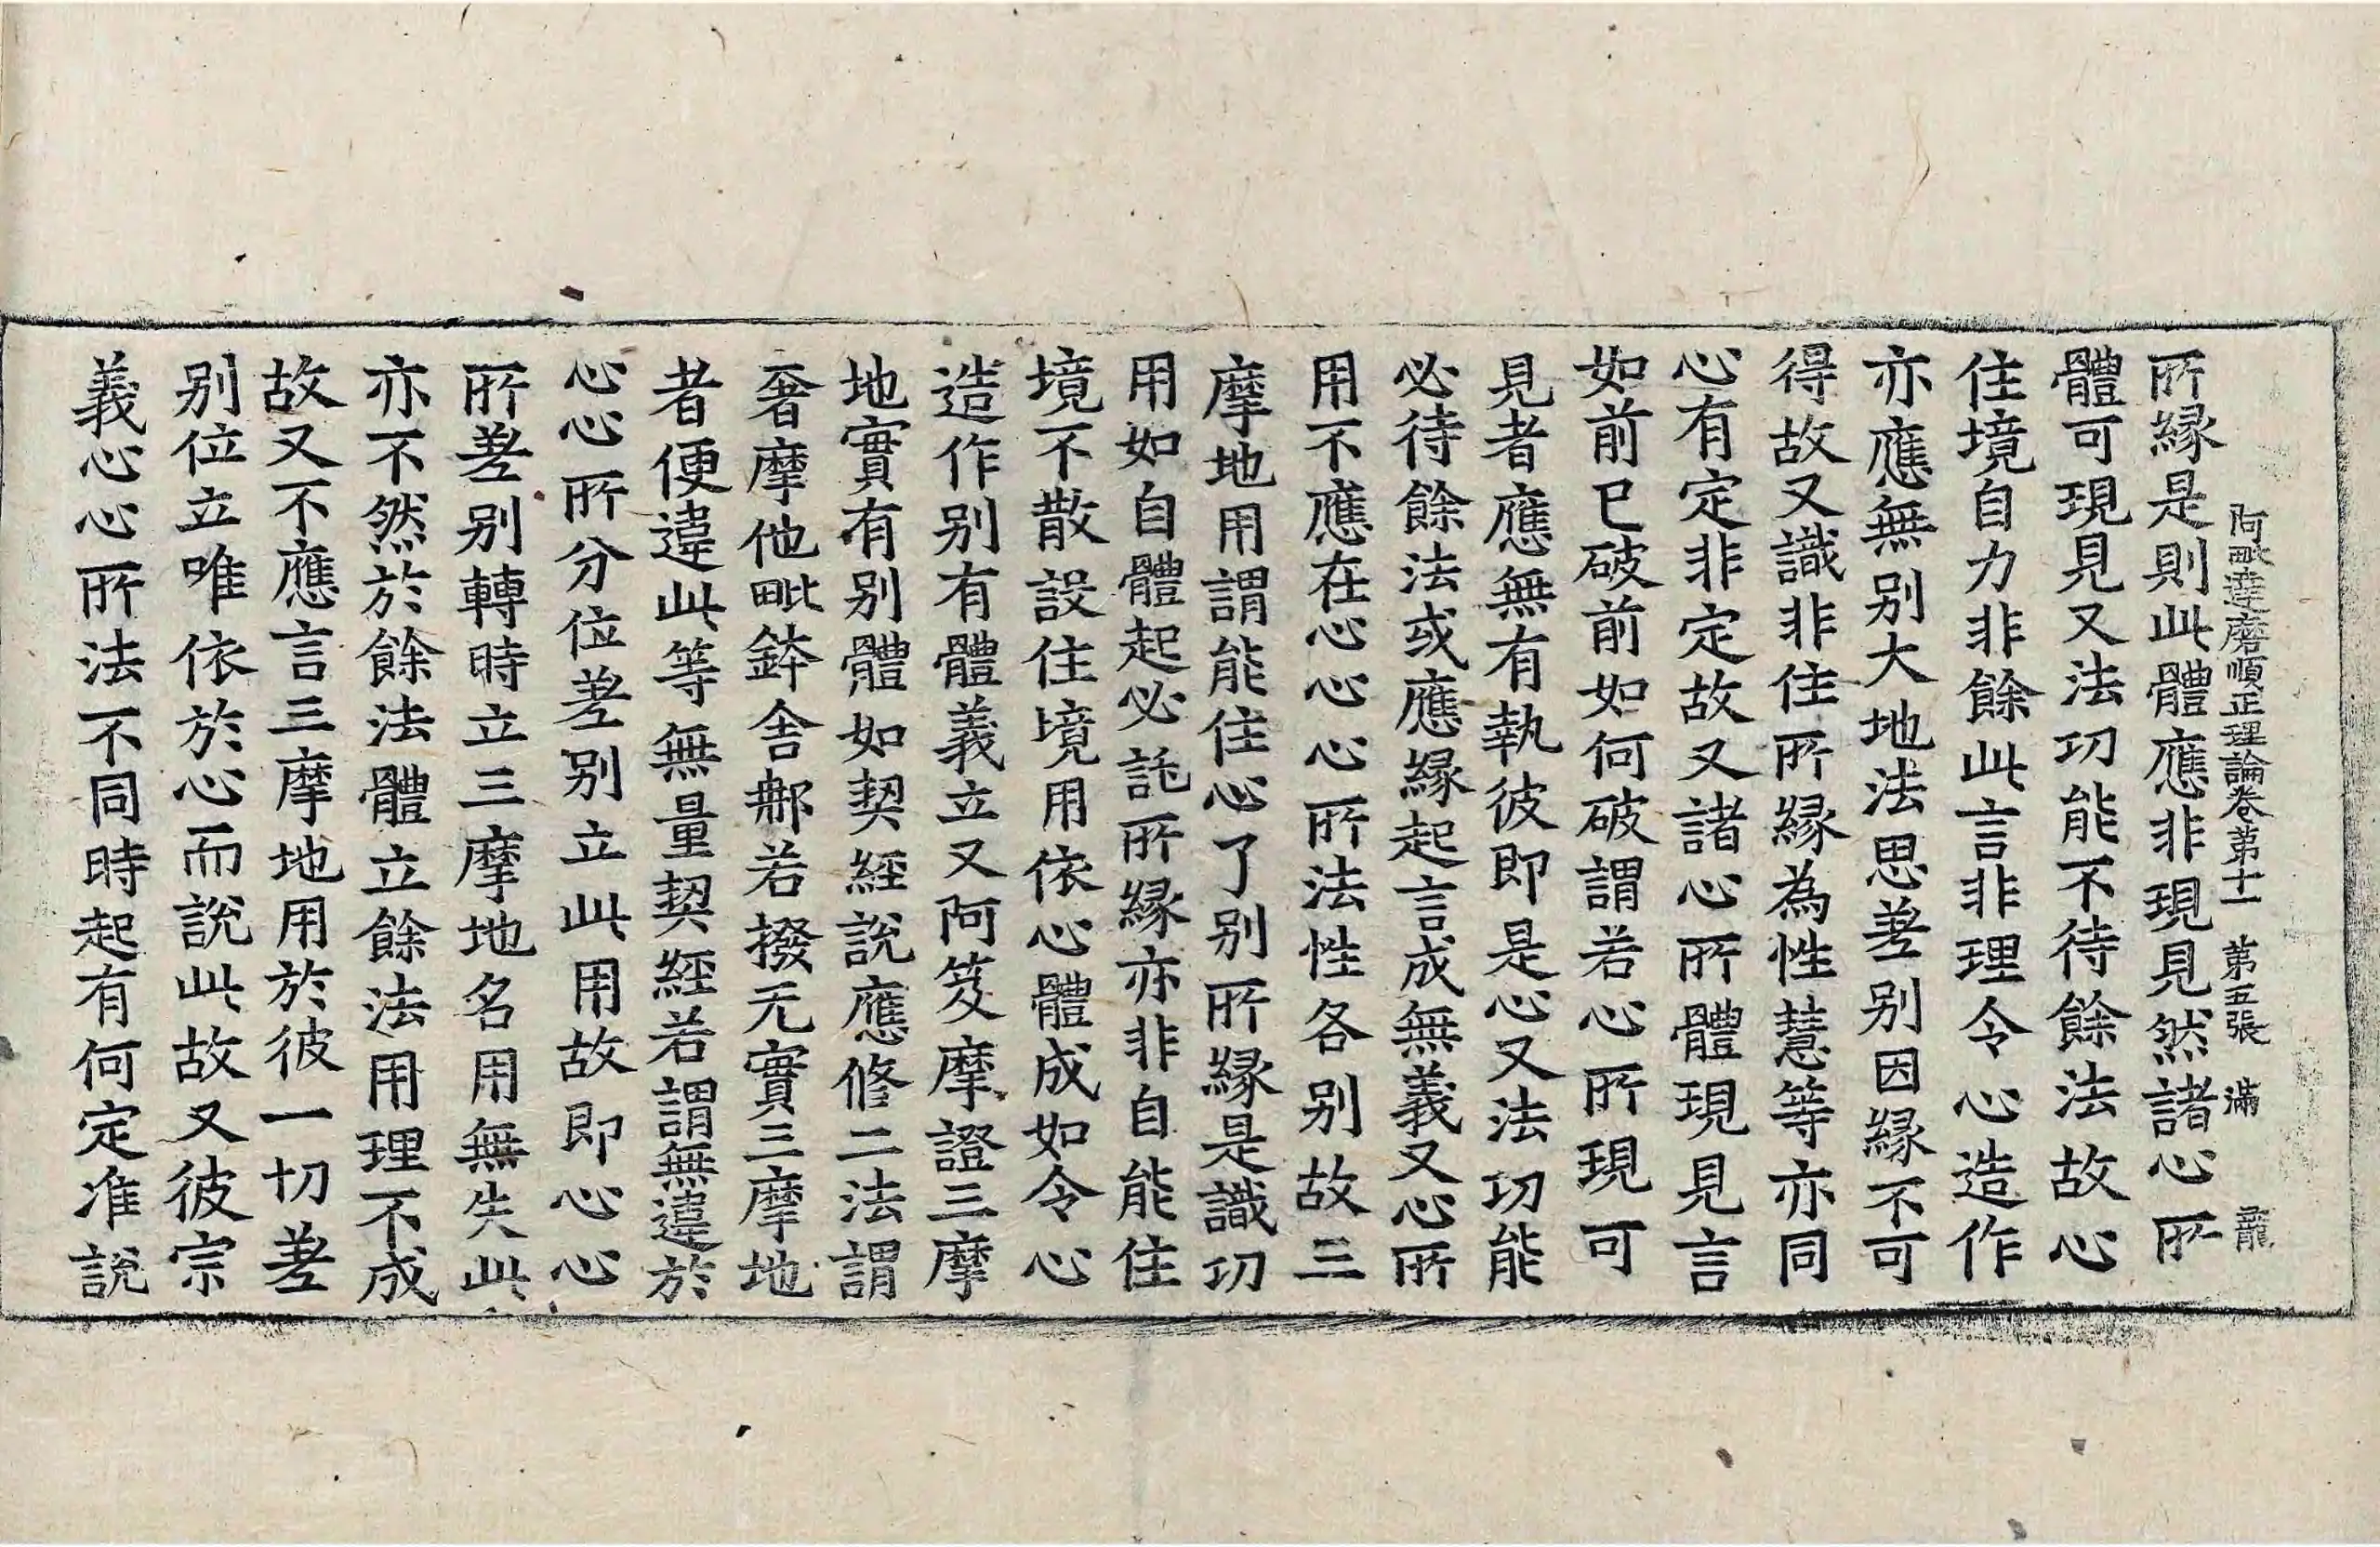 阿毗達磨順正理論卷苐十一　苐五張　滿　龍
所縁是則此體應非現見然諸心所
體可現見又法功能不待餘法故心
住境自力非餘此言非理令心造作
亦應無别大地法思差别因縁不可
得故又識非住所縁為性慧等亦同
心有定非定故又諸心所體現見言
如前已破前如何破謂若心所現可
見者應無有執彼即是心又法功能
必待餘法或應縁起言成無義又心所
用不應在心心心所法性各别故三
摩地用謂能住心了别所縁是識功
用如自體起必託所縁亦非自能住
境不散設住境用依心體成如令心
造作别有體義立又阿笈摩證三摩
地實有别體如契經說應修二法謂
奢摩他毗鉢舍那若撥无實三摩地
者便違此等無量契經若謂無違於
心心所分位差别立此用故即心心
所差别轉時立三摩地名用無失此
亦不然於餘法體立餘法用理不成
故又不應言三摩地用於彼一切差
别位立唯依於心而說此故又彼宗
義心心所法不同時起有何定准說